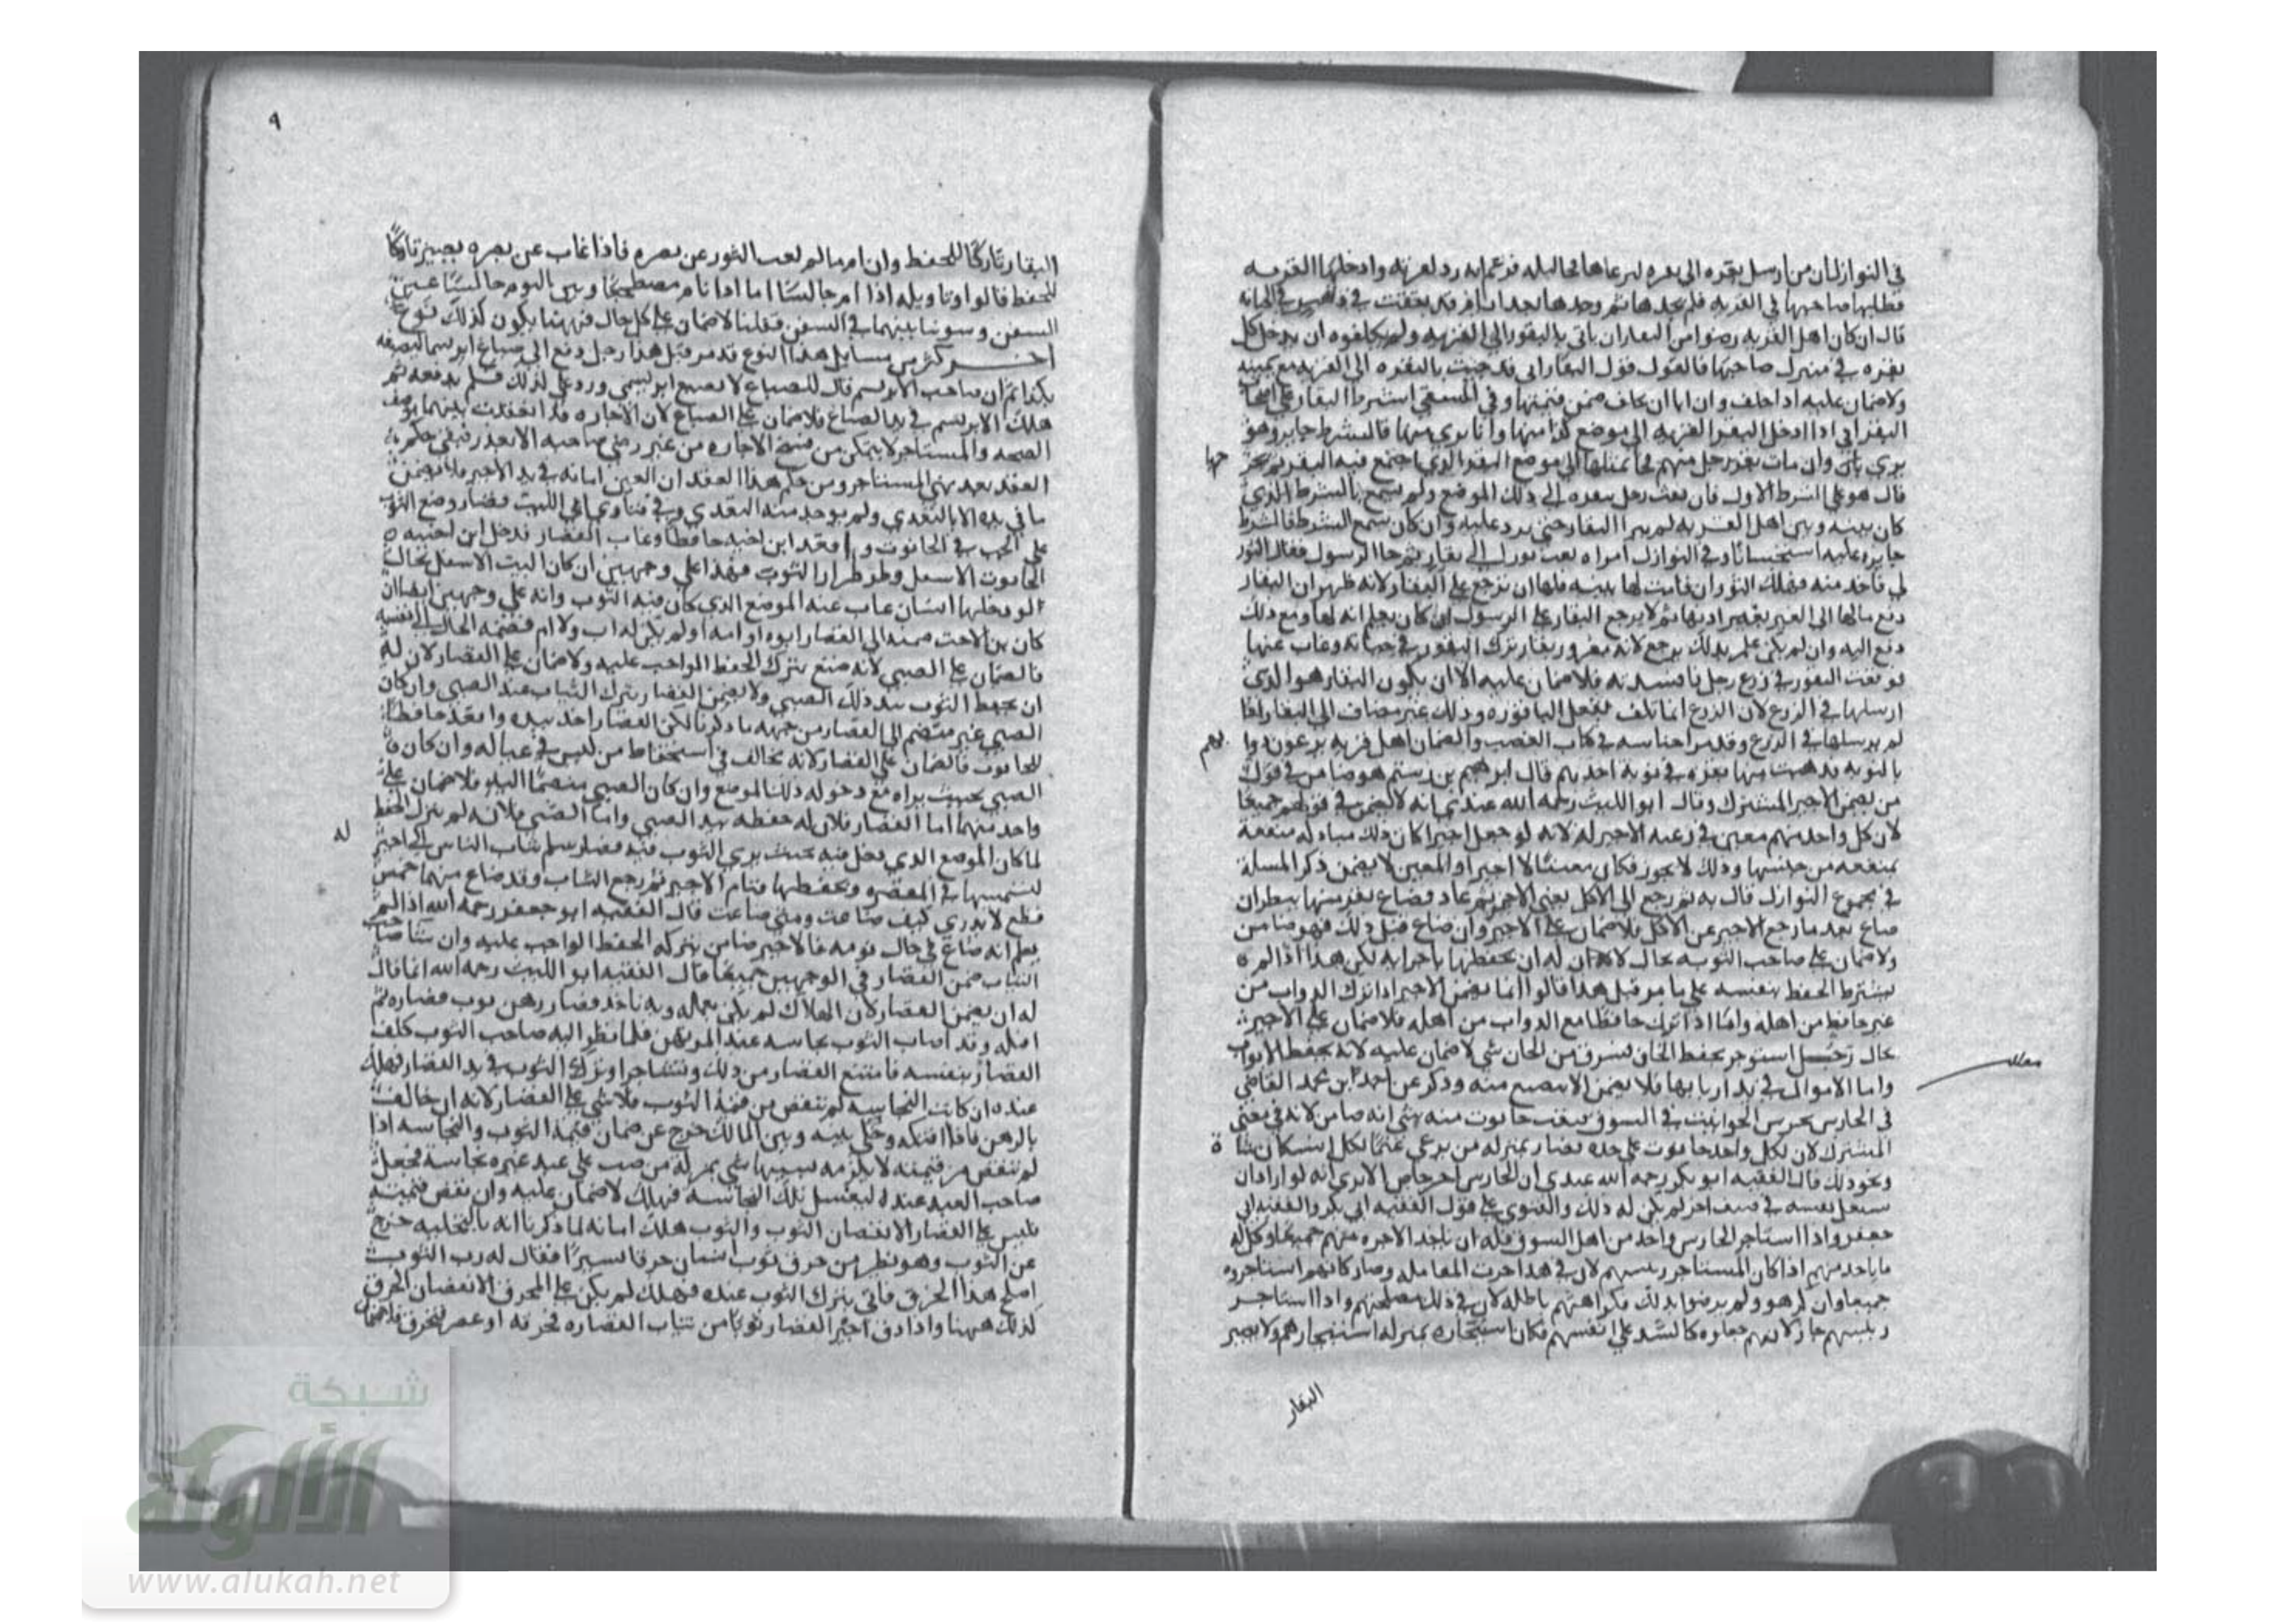 في النوازل ان من ارسل بقره الى بقره ليرعاها فجا ليله فزعم انه رد لقريه وادخلها القريه
فطلبها صاحبها في القريه فلم يجدها ثم وجدها بعد ايام قد نفقت في في الجبانه
قال ان كان اهل القريه رضوا من البقار ان ياتي بالبقور الى القريه ولم يكلفوه ان يدخل كل
بقره في منزل صاحبها فالقول قول البقار اني قد جيت بالبقره الى القريه مع يمينه
ولا ضمان عليه اذا حلف وان ابا ان يحلف ضمن قيمتها وفي المنتقى اشترط البقار على اصحاب
البقر اني اذا ادخل البقر القريه الى موضع كذا منها وانا بري منها فالشرط جايز وهو
بري وان مات بقر رجل منهم فجا بمثلها الى موضع البقر الذي اجتمع فيه البقر
قال هو على الشرط الاول فان بعث رجل ببقره الى ذلك الموضع ولم يسمع بالشرط الذي
كان بينه وبين اهل القريه لم يبرا البقار حتى يرد عليه وان كان سمع الشرط فالشرط
جايز عليه استحسانا وفي النوازل امراه بعث ثورا الى بقار ثم جا الرسول فقال الثور
لي فاخذ منه فهلك الثور ان قامت لها بينه فلها ان ترجع على البقار لانه ظهر ان البقار
دفع مالها الى الغير بغير اذنها ثم لا يرجع البقار على الرسول ان كان يعلم انه لها ومع ذلك
دفع اليه وان لم يكن علم بذلك يرجع لانه مغرور بقار ترك البقور في جبانه وغاب عنها
فوقعت البقور في زرع رجل فافسدته فلا ضمان عليه الا ان يكون البقار هو الذي
ارسلها في الزرع لان الزرع انما تلف بفعل الباقوره وذلك غير مضاف الى البقار اذا
لم يرسلها في الزرع وقد مر اجناسه في كتاب الغصب والضمان اهل قريه يرعون دوابهم
بالنوبه فذهبت منها بقره في نوبه احدهم قال ابراهيم بن رستم هو ضامن في قول
من يضمن الاجير المشترك وقال ابو الليث رحمه الله عندي انه لا يضمن في قولهم جميعا
لان كل واحد منهم معين في رعيه لا اجير له لانه لو جعل اجيرا كان ذلك مبادله منفعة
بمنفعه من جنسها وذلك لا يجوز فكان معينا لا اجيرا والمعين لا يضمن ذكر المسلة
في مجموع النوازل قال به ثم رجع الى الاكل يعني الاجير ثم عاد وضاع بقر منها ينظر ان
ضاع بعد ما رجع الاجير عن الاكل فلا ضمان على الاجير وان ضاع قبل ذلك فهو ضامن
ولا ضمان على صاحب النوبه بحال لان له ان يحفظها باجرايه لكن هذا اذا لم
يشترط الحفظ بنفسه على ما مر قبل هذا قالوا انما يضمن الاجير اذا ترك الدواب من
غير حافظ من اهله واما اذا ترك حافظا مع الدواب من اهله فلا ضمان على الاجير
بحال رجل استوجر بحفظ الخان فسرق من الخان شي لا ضمان عليه لانه يحفظ الابواب
واما الاموال في يد اربابها فلا يضمن الا ما ضيع منه وذكر عن احمد ابن محمد القاضي
في الحارس يحرس الحوانيت في السوق فنقب حانوت منه شي انه ضامن لانه في معنى
المشترك لان لكل واحد حانوت على حده فصار بمنزله من يرعى غنما لكل انسان شاة
ونحو ذلك قال الفقيه ابو بكر رحمه الله عندي ان الحارس اجير خاص الا يرى انه لو اراد ان
يشغل نفسه في صنف اخر لم يكن له ذلك والفتوى على قول الفقيه ابي بكر والفقيه ابي
جعفر واذا استاجر الحارس واحد من اهل السوق فله ان ياخذ الاجره منهم جميعا وكل له
ما ياخذ منهم اذا كان المستاجر رييسهم لان في هذا جرت المعامله وصار كانهم استاجروه
جميعا وان كرهوا ولم يرضوا بذلك فكراهتهم باطله لان في ذلك مصلحتهم واذا استاجر
رييسهم جاز لانهم جعلوه كالسيد على انفسهم فكان استيجاره بمنزله استيجارهم ولا يصير
البقار
٩
البقار تاركا للحفظ وان نام ما لم يغب الثور عن بصره فاذا غاب عن بصره يصير تاركا
للحفظ قالوا وتاويله اذا نام جالسا اما اذا نام مضطجعا وبين النوم جالسا
السفر وسوينا بينهما في السفر وقلنا لا ضمان على كل حال فههنا يكون كذلك نوع
اخر من مسايل هذا النوع قد مر قبل هذا رجل دفع الى صباغ ابريسما ليصبغه
بكذا ثم ان صاحب الابريسم قال للصباغ لا تصبغ ابريسمي ورده على لذلك فلم يدفعه ثم
هلك الابريسم في يد الصباغ فلا ضمان على الصباغ لان الاجاره قد انعقدت بينهما بوصف
الصحه والمستاجر لا يتمكن من فسخ الاجاره من غير رضى صاحبه الا بعذر فبقي حكم
العقد بعد نهي المستاجر ومن حكم هذا العقد ان العين امانه في يد الاجير فلا يضمن
ما في يده الا بالتعدي ولم يوجد منه التعدي وفي فتاوي ابي الليث قصار وضع الثوب
على الحب في الحانوت واقعد ابن اخته حافظا وغاب القصار فدخل ابن اخته
الحانوت الاسفل وطر طرار الثوب فهذا على وجهين ان كان البيت الاسفل بحال
لو دخلها انسان غاب عنه الموضع الذي كان فيه الثوب وانه على وجهين ايضا ان
كان ابن الاخت ضمه الى القصار ابوه او امه او لم يكن له اب ولا ام فضمه الخال الى نفسه
فالضمان على الصبي لانه ضيع بترك الحفظ الواجب عليه ولا ضمان على القصار لان له
ان يحفظ الثوب بيد ذلك الصبي ولا يضمن القصار بترك الثياب عند الصبي وان كان
الصبي غير منضم الى القصار من جهه ما ذكرنا لكن القصار اخذ بيده واقعد حافظا
للحانوت فالضمان على القصار لانه مخالف في استحفاظ من ليس في عياله وان كان
الصبي بحيث يراه مع دخوله ذلك الموضع وان كان الصبي منضما اليه فلا ضمان على
واحد منهما اما القصار فلان له حفظه بيد الصبي واما الصبي فلانه لم يترك الحفظ
لما كان الموضع الذي دخل فيه بحيث يري الثوب فيه قصار سلم ثياب الناس الى اجير له
ليشمسها في المقصره ويحفظها فنام الاجير ثم رجع الثياب وقد ضاع منها خمس
قطع لا يدري كيف ضاعت ومتى ضاعت قال الفقيه ابو جعفر رحمه الله اذا لم
يعلم انه ضاع في حال نومه فالاجير ضامن بتركه الحفظ الواجب عليه وان شا صاحب
الثياب ضمن القصار في الوجهين جميعا قال الفقيه ابو الليث رحمه الله انما قال
له ان يضمن القصار لان الهلاك لم يكن بعمله وبه ناخذ قصار رهن ثوب قصاره ثم
افتكه وقد اصاب الثوب نجاسه عند المرتهن فلما نظر اليه صاحب الثوب كلف
القصار بنفسه فامتنع القصار من ذلك وتشاجرا وترك الثوب في يد القصار فهلك
عنده ان كانت النجاسه لم تنقص من قيمة الثوب فلا شي على القصار لانه ان خالف
بالرهن فاذا افتكه وخلي بينه وبين المالك خرج عن ضمان قيمة الثوب والنجاسه اذا
لم تنقص من قيمته لا يلزمه بسببها شي بمنزله من صب على عبد غيره نجاسة فجعل
صاحب العبد عنده ليغسل تلك النجاسه فهلك لا ضمان عليه وان نقص قيمته
فليس على القصار الا نقصان الثوب والثوب هلك امانه لما ذكرنا انه بالتخليه خرج
عن الثوب وهو نظير من خرق ثوب انسان خرقا يسيرا فقال له رب الثوب
اصلح هذا الخرق فاتى بترك الثوب عنده فهلك لم يكن على المخرق الا نقصان الخرق
كذلك ههنا واذا دق اجير القصار ثوبا من ثياب القصاره فخرقه او عصر فتخرق فلا ضمان
شبكة
الألوكة
www.alukah.net